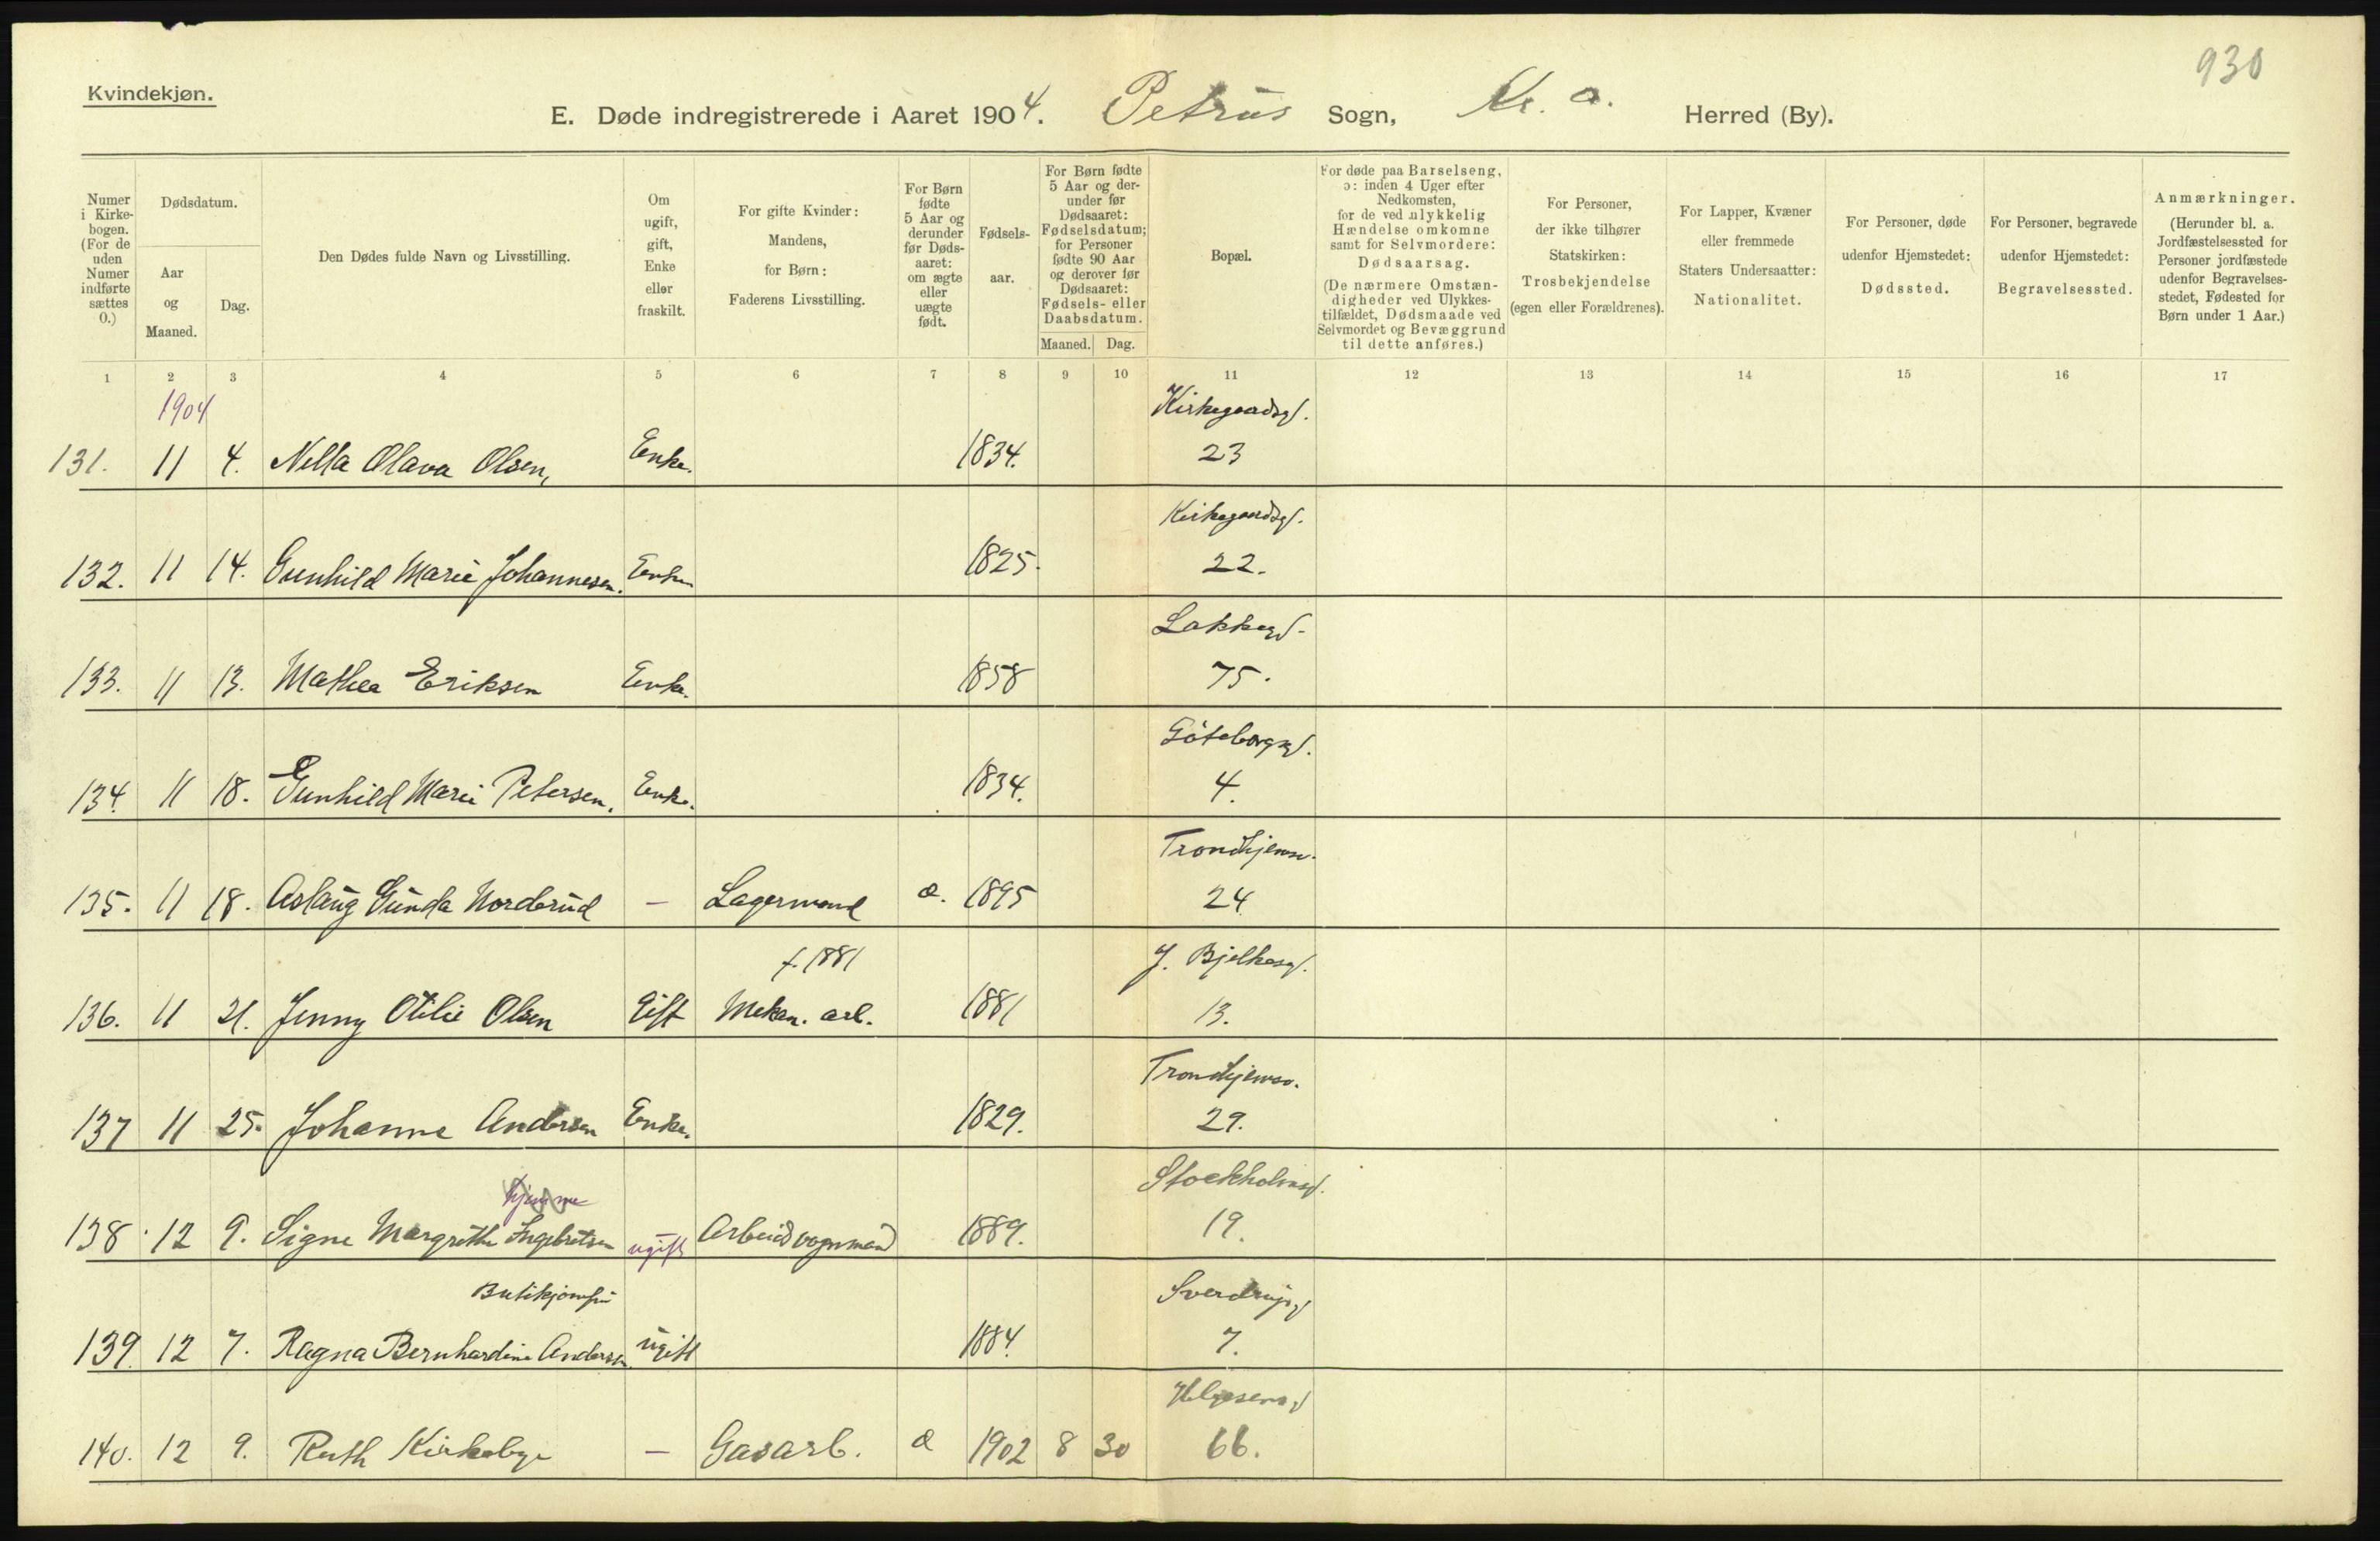 930
Kvindekjøn.
E. Døde indregistrerede i Aaret 1904. Petrus Sogn, Kr. a. Herred (By).
Numer i Kirke-bogen. (For de uden Numer indførte sættes 0.)
Dødsdatum.
Aar og Maaned.
Dag.
Den Dødes fulde Navn og Livsstilling.
Om ugift, gift, Enke eller fraskilt.
For gifte Kvinder: Mandens, for Børn: Faderens Livsstilling.
For Børn fødte 5 Aar og derunder før Døds-aaret: om ægte eller uægte født.
Fødsels-aar.
For Børn fødte 5 Aar og der-under før Dødsaaret: Fødselsdatum; for Personer fødte 90 Aar og derover før Dødsaaret: Fødsels- eller Daabsdatum.
Maaned. Dag.
Bopæl.
For døde paa Barselseng, ɔ: inden 4 Uger efter Nedkomsten, for de ved ulykkelig Hændelse omkomne samt for Selvmordere: Dødsaarsag. (De nærmere Omstæn-digheder ved Ulykkes-tilfældet, Dødsmaade ved Selvmordet og Bevæggrund til dette anføres.)
For Personer, der ikke tilhører Statskirken: Trosbekjendelse (egen eller Forældrenes).
For Lapper, Kvæner eller fremmede Staters Undersaatter: Nationalitet.
For Personer, døde udenfor Hjemstedet: Dødssted.
For Personer, begravede udenfor Hjemstedet: Begravelsessted.
Anmærkninger. (Herunder bl. a. Jordfæstelsessted for Personer jordfæstede udenfor Begravelses-stedet, Fødested for Børn under 1 Aar.)
1 2 3 4 5 6 7 8 9 10 11 12 13 14 15 16 17
1904 Kirkegaardsgd.
131. 11 4. Nella Olava Olsen, Enke. 1834. 23
Kirkegaardsgd.
132. 11 14. Gunhild Marie Johannesen. Enke 1825. 22.
Lakkegd.
133. 11 13. Mathea Eriksen Enke. 1858 75.
Göteborgsgd.
134. 11 18. Gunhild Marie Petersen. Enke. 1834. 4.
Trondhjemsv.
135. 11 18. Aslaug Gunda Nordbrud – Lagermand æ. 1895 24
f. 1881 J. Bjelkesgd.
136. 11 21. Jenny Otilie Olsen Gift Mekan. arb. 1881 13.
Trondhjemsv.
137 11 25. Johanne Andersen Enke. 1829. 29.
hjemme Stockholmsgd.
138 12 9. Signe Margrethe Ingebretsen ugift Arbeidsvognmand 1889. 19.
Butikjomfru Sverdrupsgd
139. 12 7. Ragna Bernhardine Andersen ugift 1884. 7.
Helgesensgd
140. 12 9. Ruth Kirkebye – Gasarb. æ 1902 8 30 66.